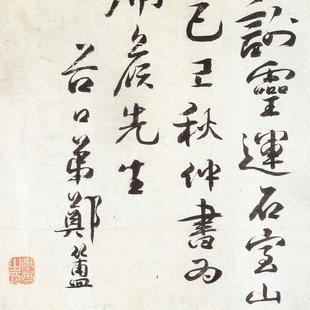 謝靈運石室山
秋仲書為
先生
谷口弟鄭簠